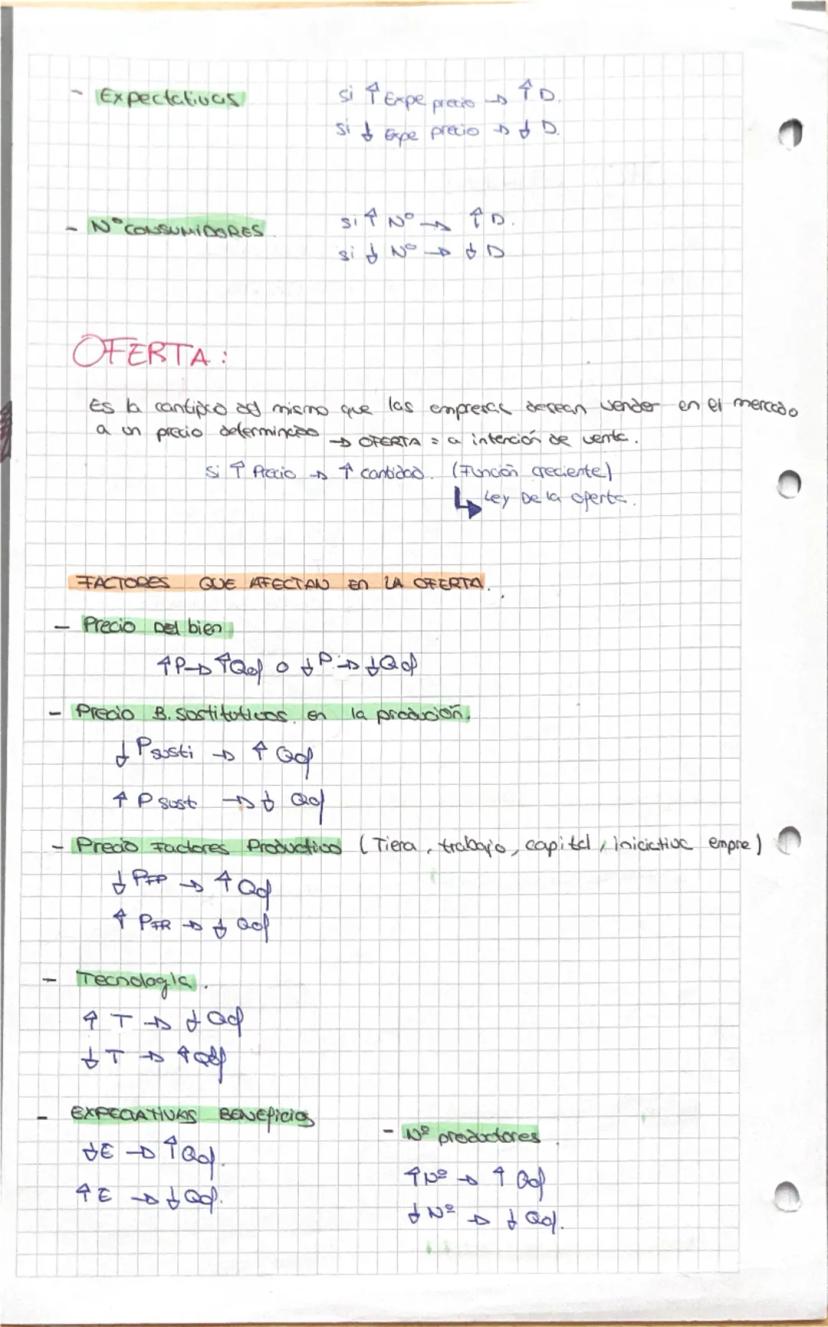 - Expectativas
si ↑ Expe precio → ↑ D.
si ↓ Expe precio → ↓ D.
- Nº CONSUMIDORES
si ↑ Nº → ↑ D.
si ↓ Nº → ↓ D
OFERTA:
Es la del mismo que las empresas desean vender en el mercado
a un precio determinado → OFERTA = a intención de venta.
si ↑ Precio → ↑ cantidad. (Función creciente)
↳ Ley De la oferta.
FACTORES QUE AFECTAN EN LA OFERTA.
- Precio Del bien
↑P → ↑Qof o ↓P → ↓Qof
- Precio B. sostitutivos en la produción.
↓ P susti → ↑ Qof
↑ P sust → ↓ Qof
- Precio Factores Productivo (Tiera, trabajo, capital, iniciativa empre)
↓ PFP → ↑ Qof
↑ PFR → ↓ Qof
- Tecnologia.
↑ T → ↓ Qof
↓ T → ↑ Qof
- EXPECTATIVAS BENEficios
↓E → ↑ Qof.
↑ E → ↓ Qof.
- Nº productores.
↑Nº → ↑ Qof
↓Nº → ↓ Qof.